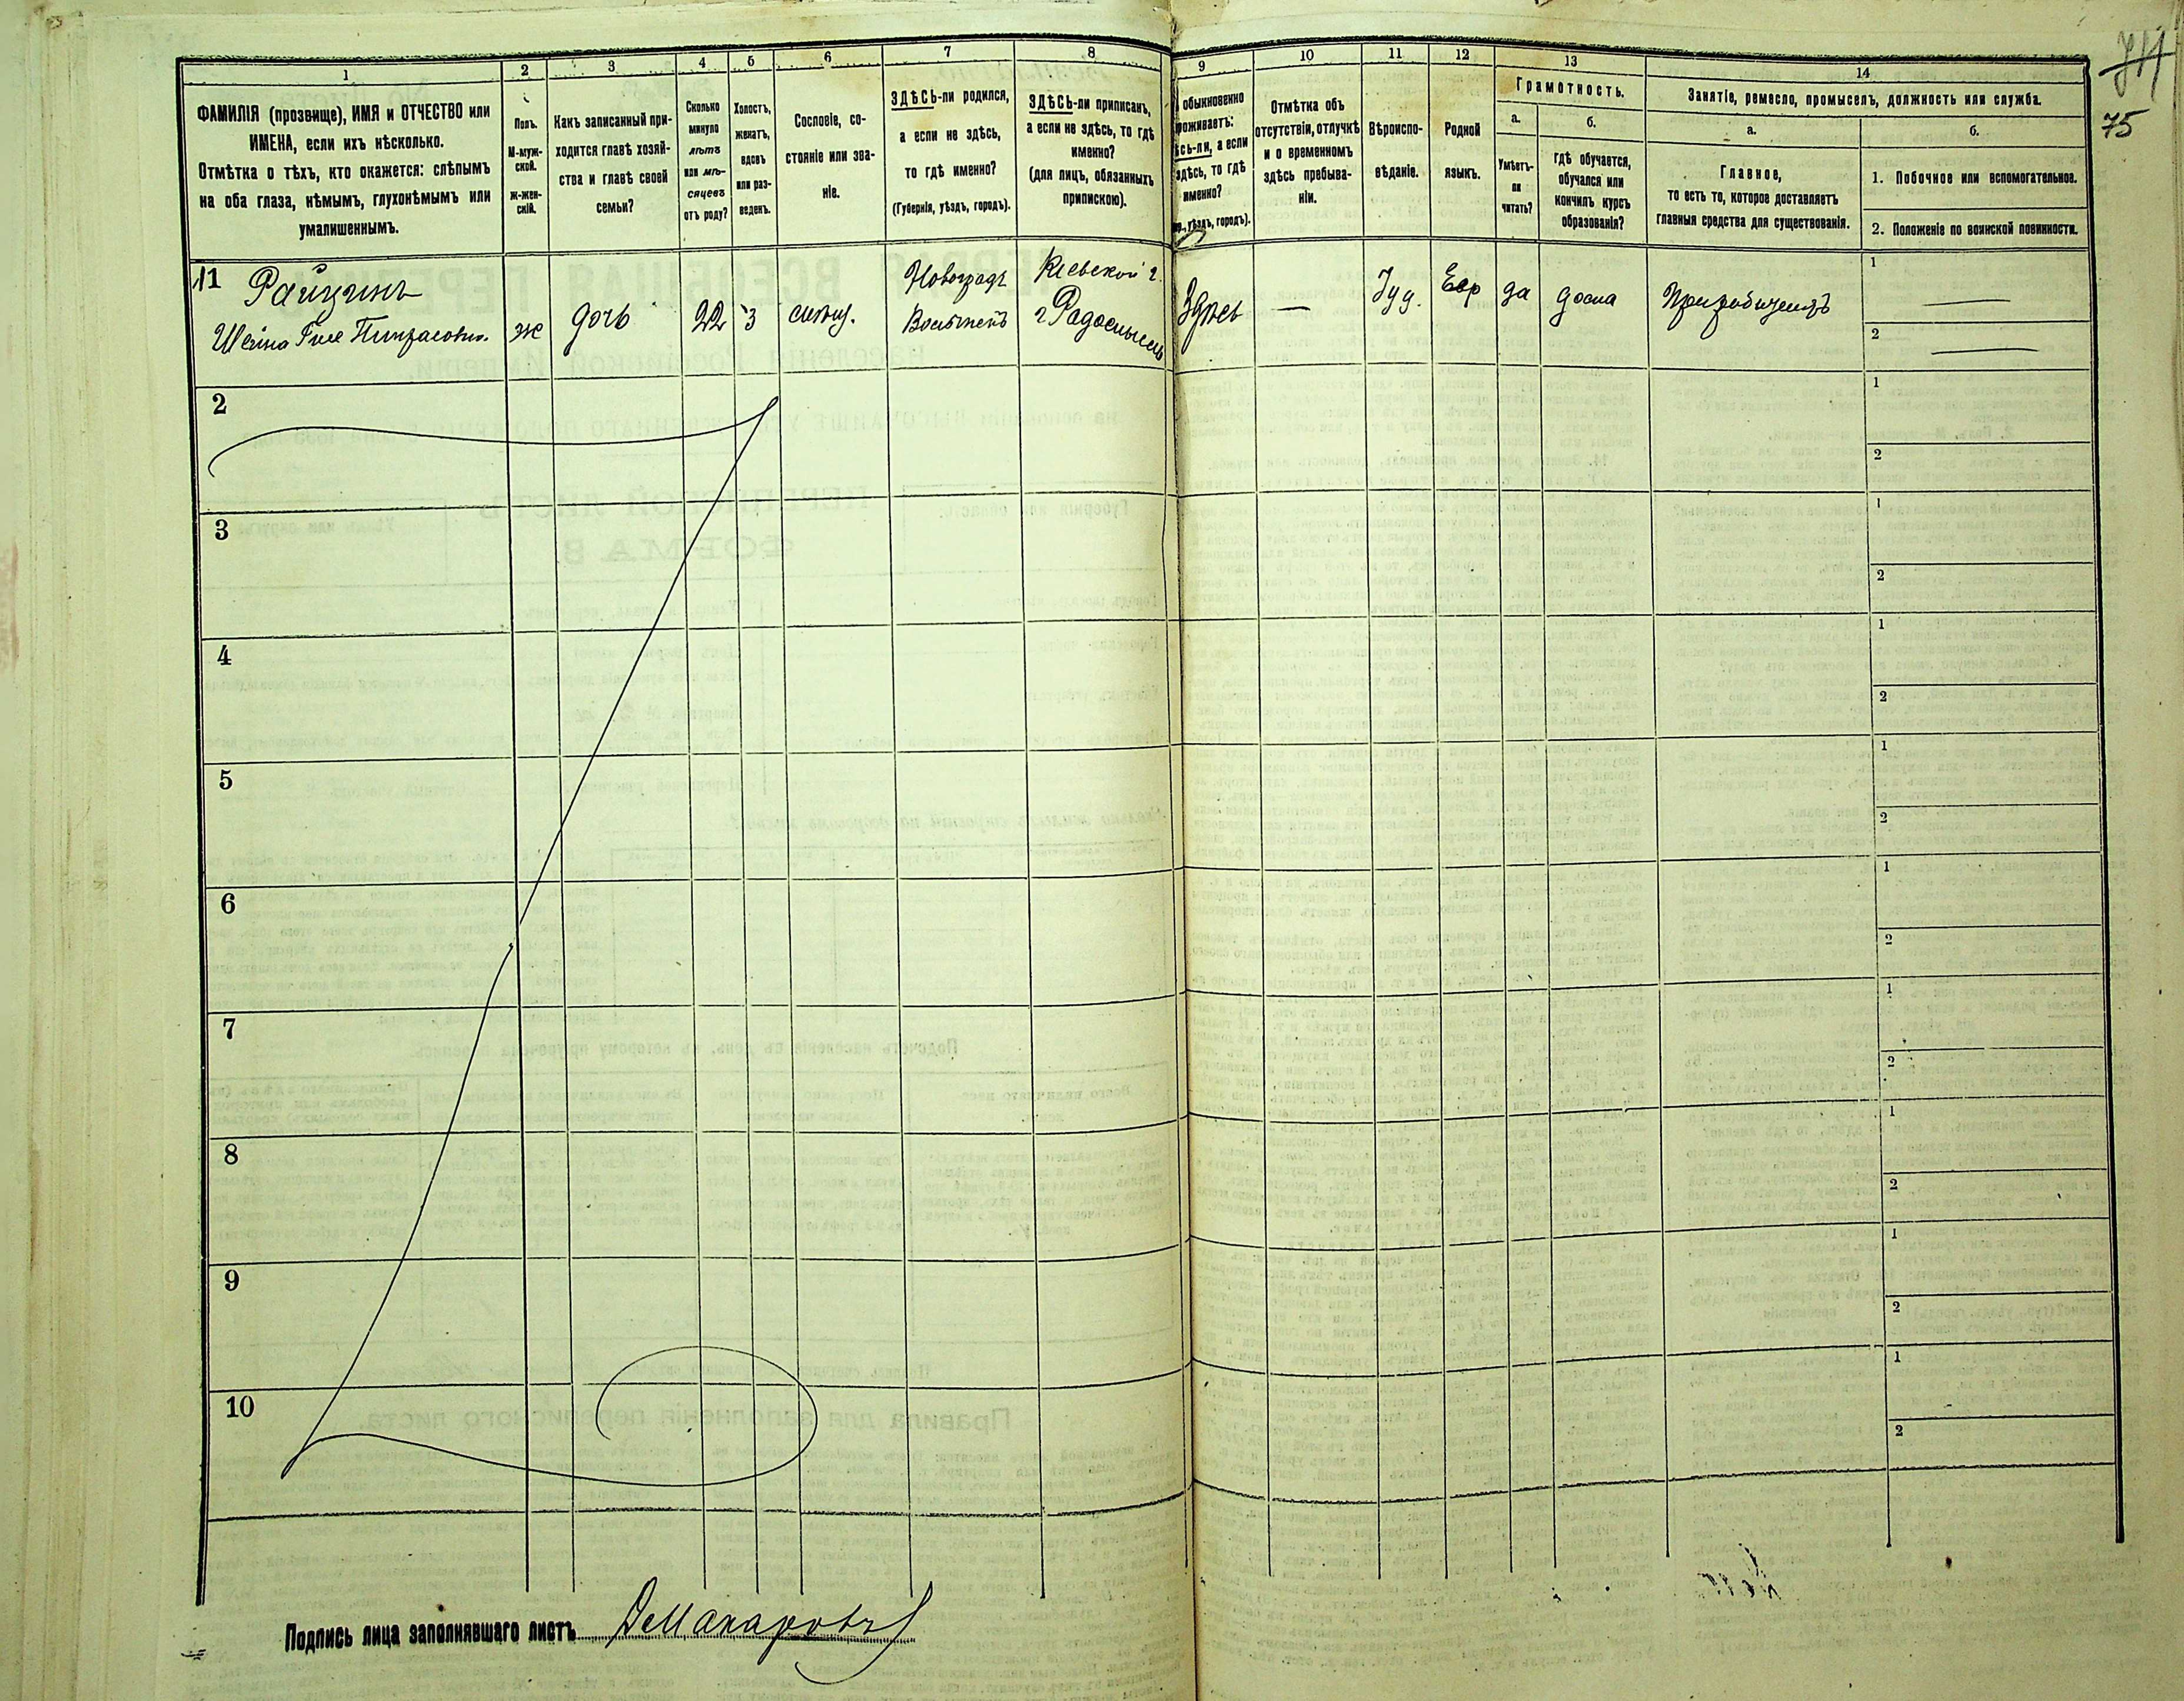 1 2 3 4 5 6 7 8 9 10 11 12 13 14
75
ФАМИЛІЯ (прозвище), ИМЯ и ОТЧЕСТВО или
ИМЕНА, если ихъ нѣсколько.
Отмѣтка о тѣхъ, кто окажется: слѣпымъ
на оба глаза, нѣмымъ, глухонѣмымъ или
умалишеннымъ.
Полъ.
М-муж-
ской.
ж-жен-
скій.
Какъ записанный при-
ходится главѣ хозяй-
ства и главѣ своей
семьи?
Сколько
минуло
лѣтъ
или мѣ-
сяцевъ
отъ роду?
Холостъ,
женатъ,
вдовъ
или раз-
веденъ.
Сословіе, со-
стояніе или зва-
ніе.
ЗДѢСЬ-ли родился,
а если не здѣсь,
то гдѣ именно?
(Губернія, уѣздъ, городъ).
ЗДѢСЬ-ли приписанъ,
а если не здѣсь, то гдѣ
именно?
(для лицъ, обязанныхъ
припискою).
обыкновенно
роживаетъ:
сь-ли, а если
здѣсь, то гдѣ
именно?
уѣздъ, городъ).
Отмѣтка объ
отсутствіи, отлучкѣ
и о временномъ
здѣсь пребыва-
ніи.
Вѣроиспо-
вѣданіе.
Родной
языкъ.
Грамотность.
а. б.
Умѣетъ-
ли
читать?
гдѣ обучается,
обучался или
кончилъ курсъ
образованія?
Занятіе, ремесло, промыселъ, должность или служба.
а. б.
Главное,
то есть то, которое доставляетъ
главныя средства для существованія.
1. Побочное или вспомогательное.
2. Положеніе по воинской повинности.
11
ж дочь 22
Новоградъ
Кіевской г.
г Радомысль
Здѣсь — Іуд. Евр да дома
1 —
2 —
2 1
2
3 1
2
4 1
2
5 1
2
6 1
2
7 1
2
8 1
2
9 1
2
10 1
2
Подпись лица заполнявшаго листъ